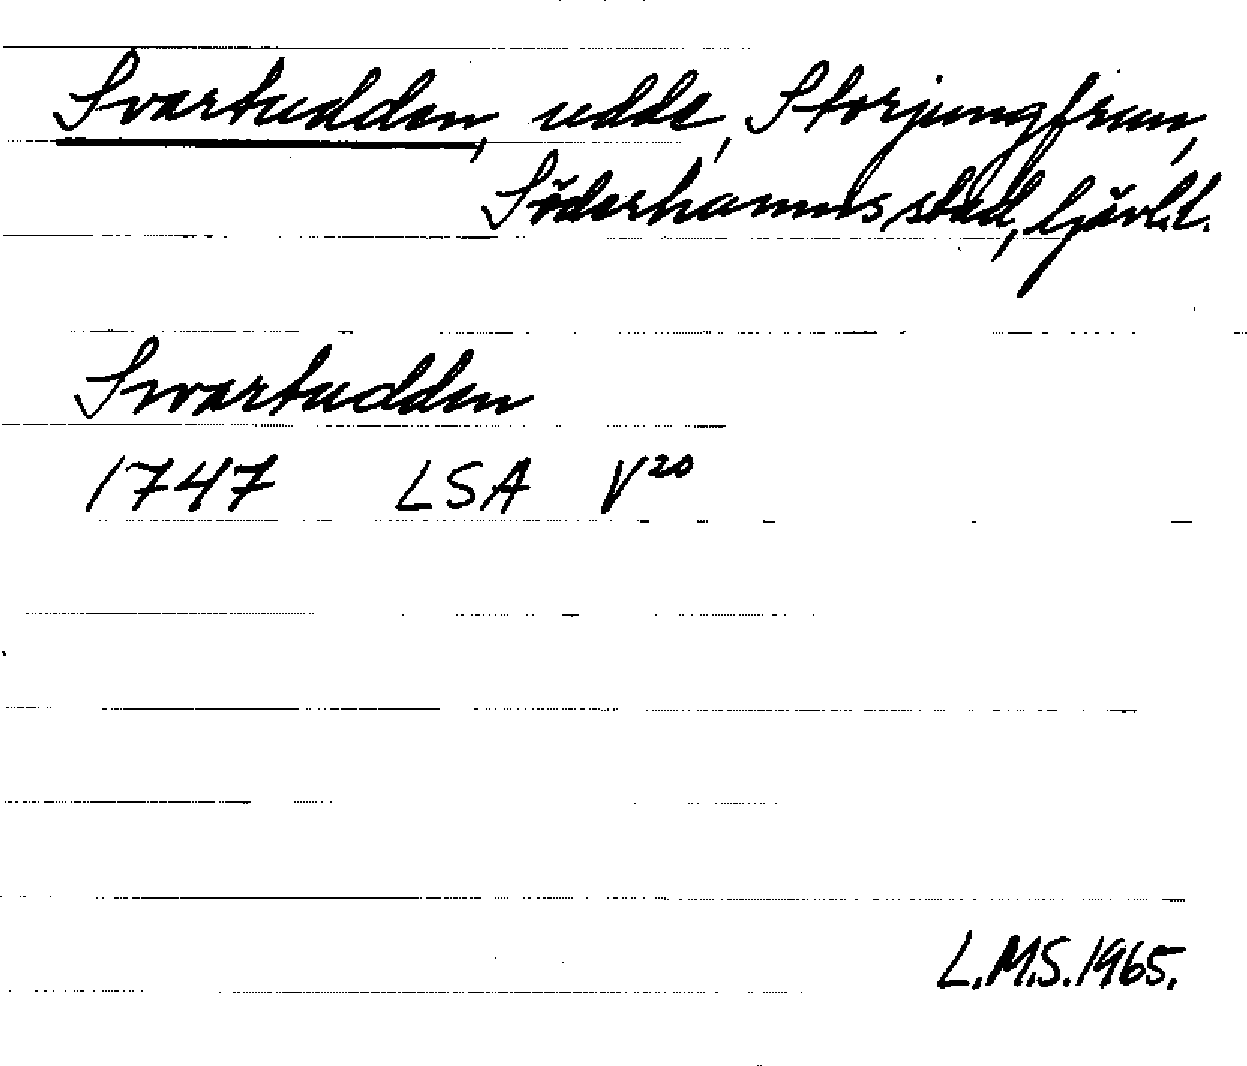 Svartudden, udde, Storjungfrun,
Söderhamns stad, Gävl.l.
Swartudden
1747 LSA V20
L.M.S. 1965.